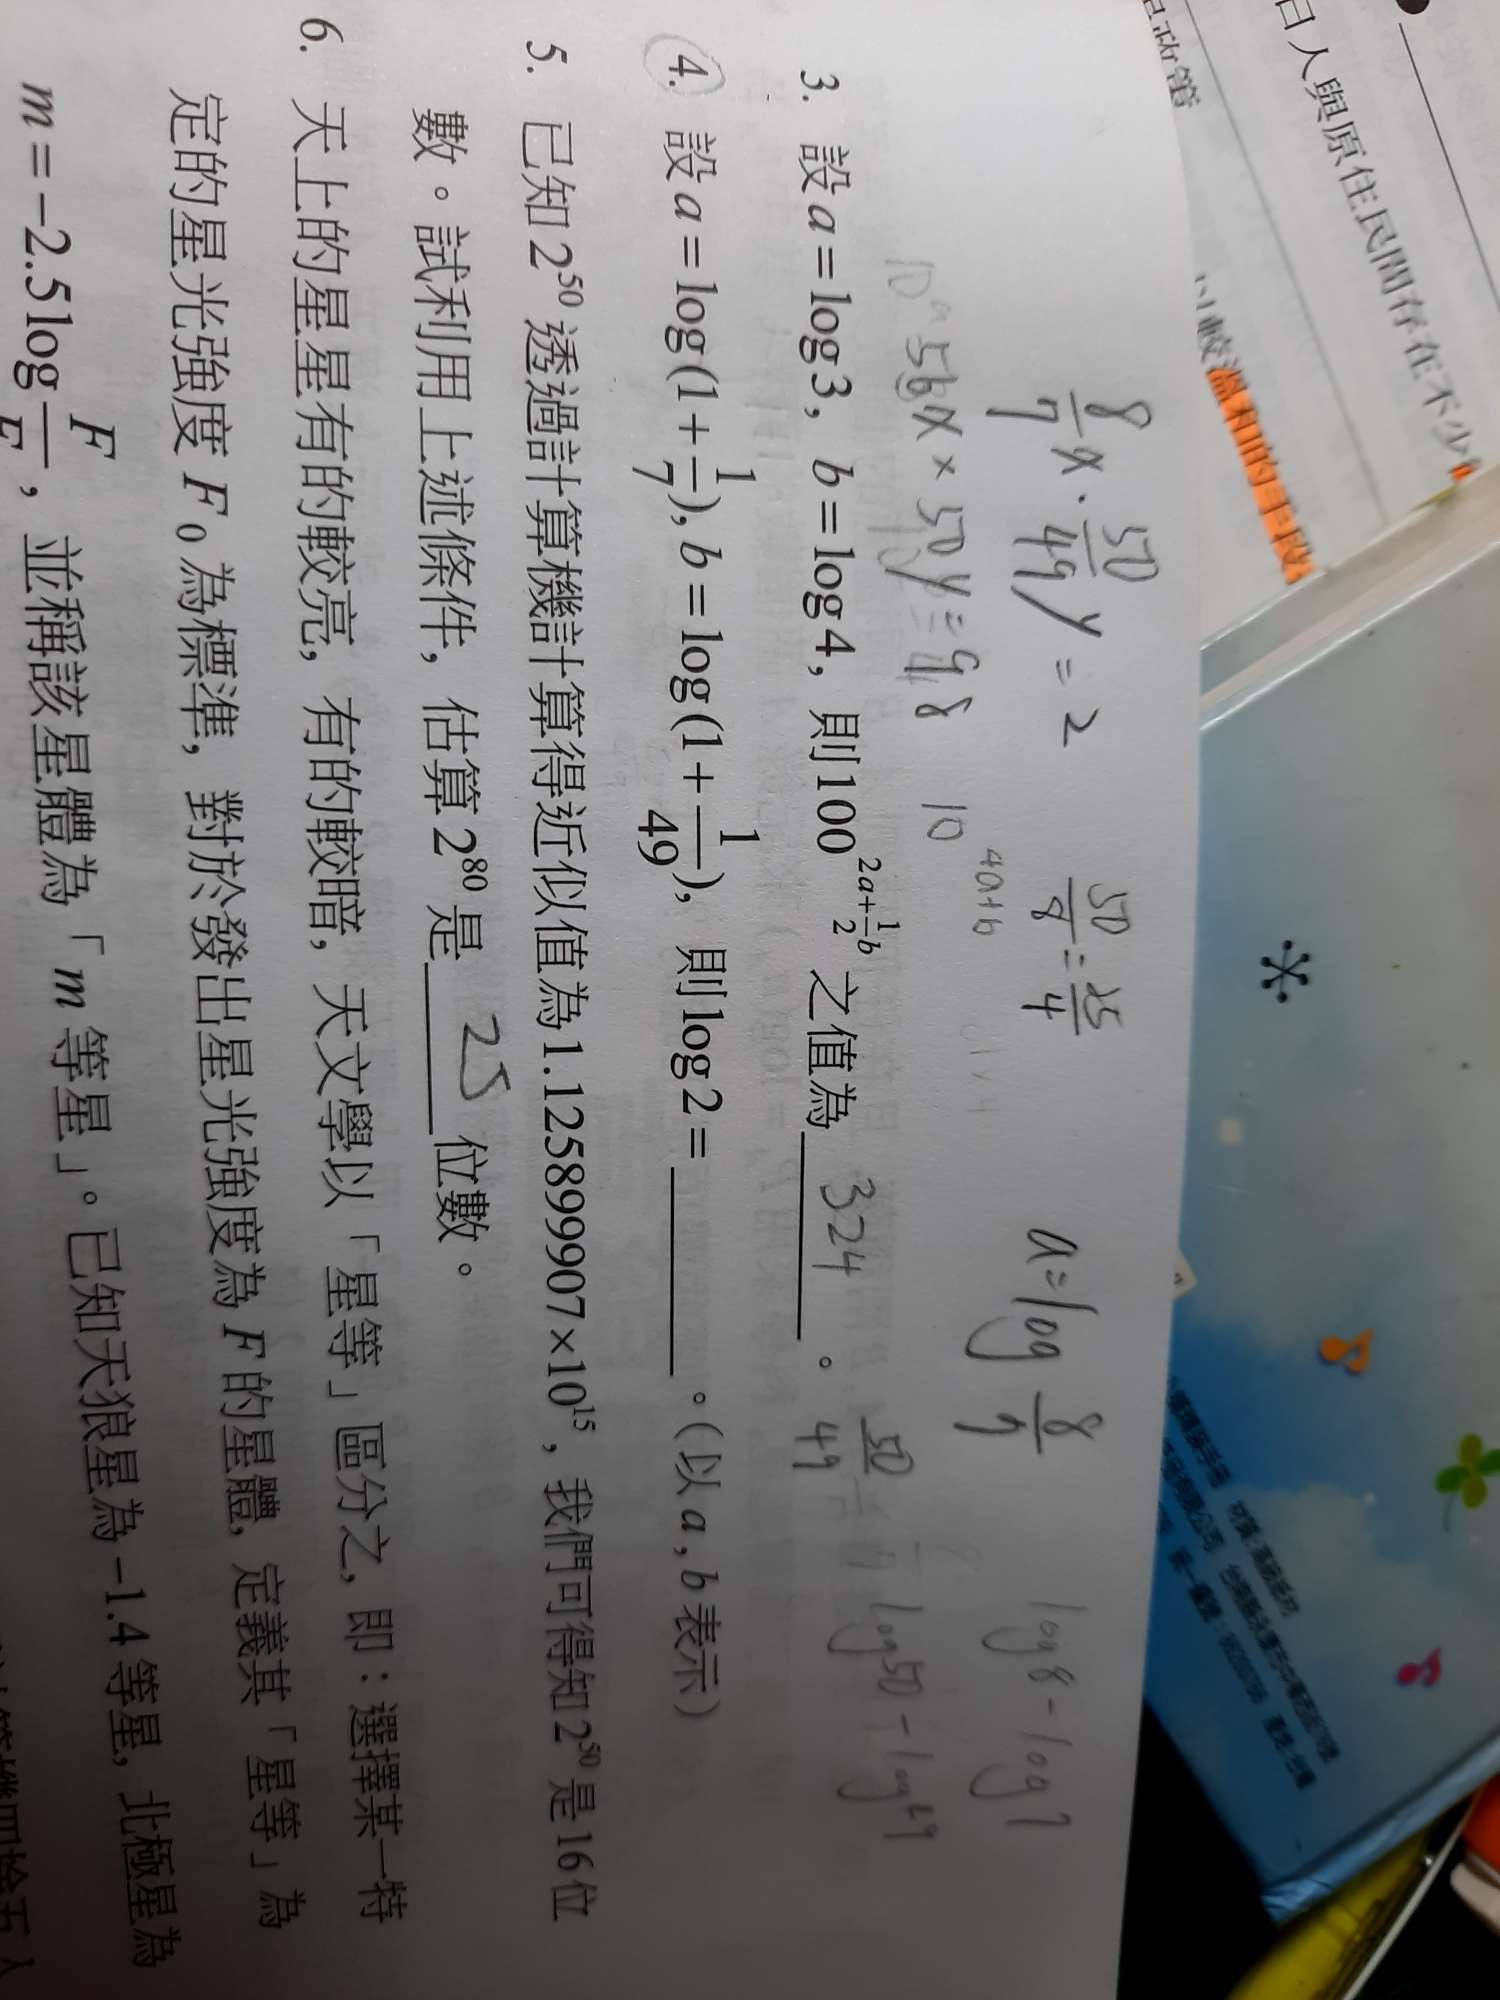 日人與原住民間存在不少
以較溫和的手段
8/7 x · 50/49 y = 2
50/8 = 25/4
a = log 8/7
log8 - log7
10
4a+b
56x × 50y = 98
50/49
log50 - log49
3. 設 a = log3, b = log4, 則 100^(2a+1/2b) 之值為 324 。
4. 設 a = log(1+1/7), b = log(1+1/49), 則 log2 = ________。(以 a, b 表示)
5. 已知 2^50 透過計算機計算得近似值為 1.125899907×10^15, 我們可得知 2^50 是 16 位
數。試利用上述條件, 估算 2^80 是 25 位數。
6. 天上的星星有的較亮, 有的較暗, 天文學以「星等」區分之, 即:選擇某一特
定的星光強度 F0 為標準, 對於發出星光強度為 F 的星體, 定義其「星等」為
m = -2.5 log F/F, 並稱該星體為「m 等星」。已知天狼星為 -1.4 等星, 北極星為